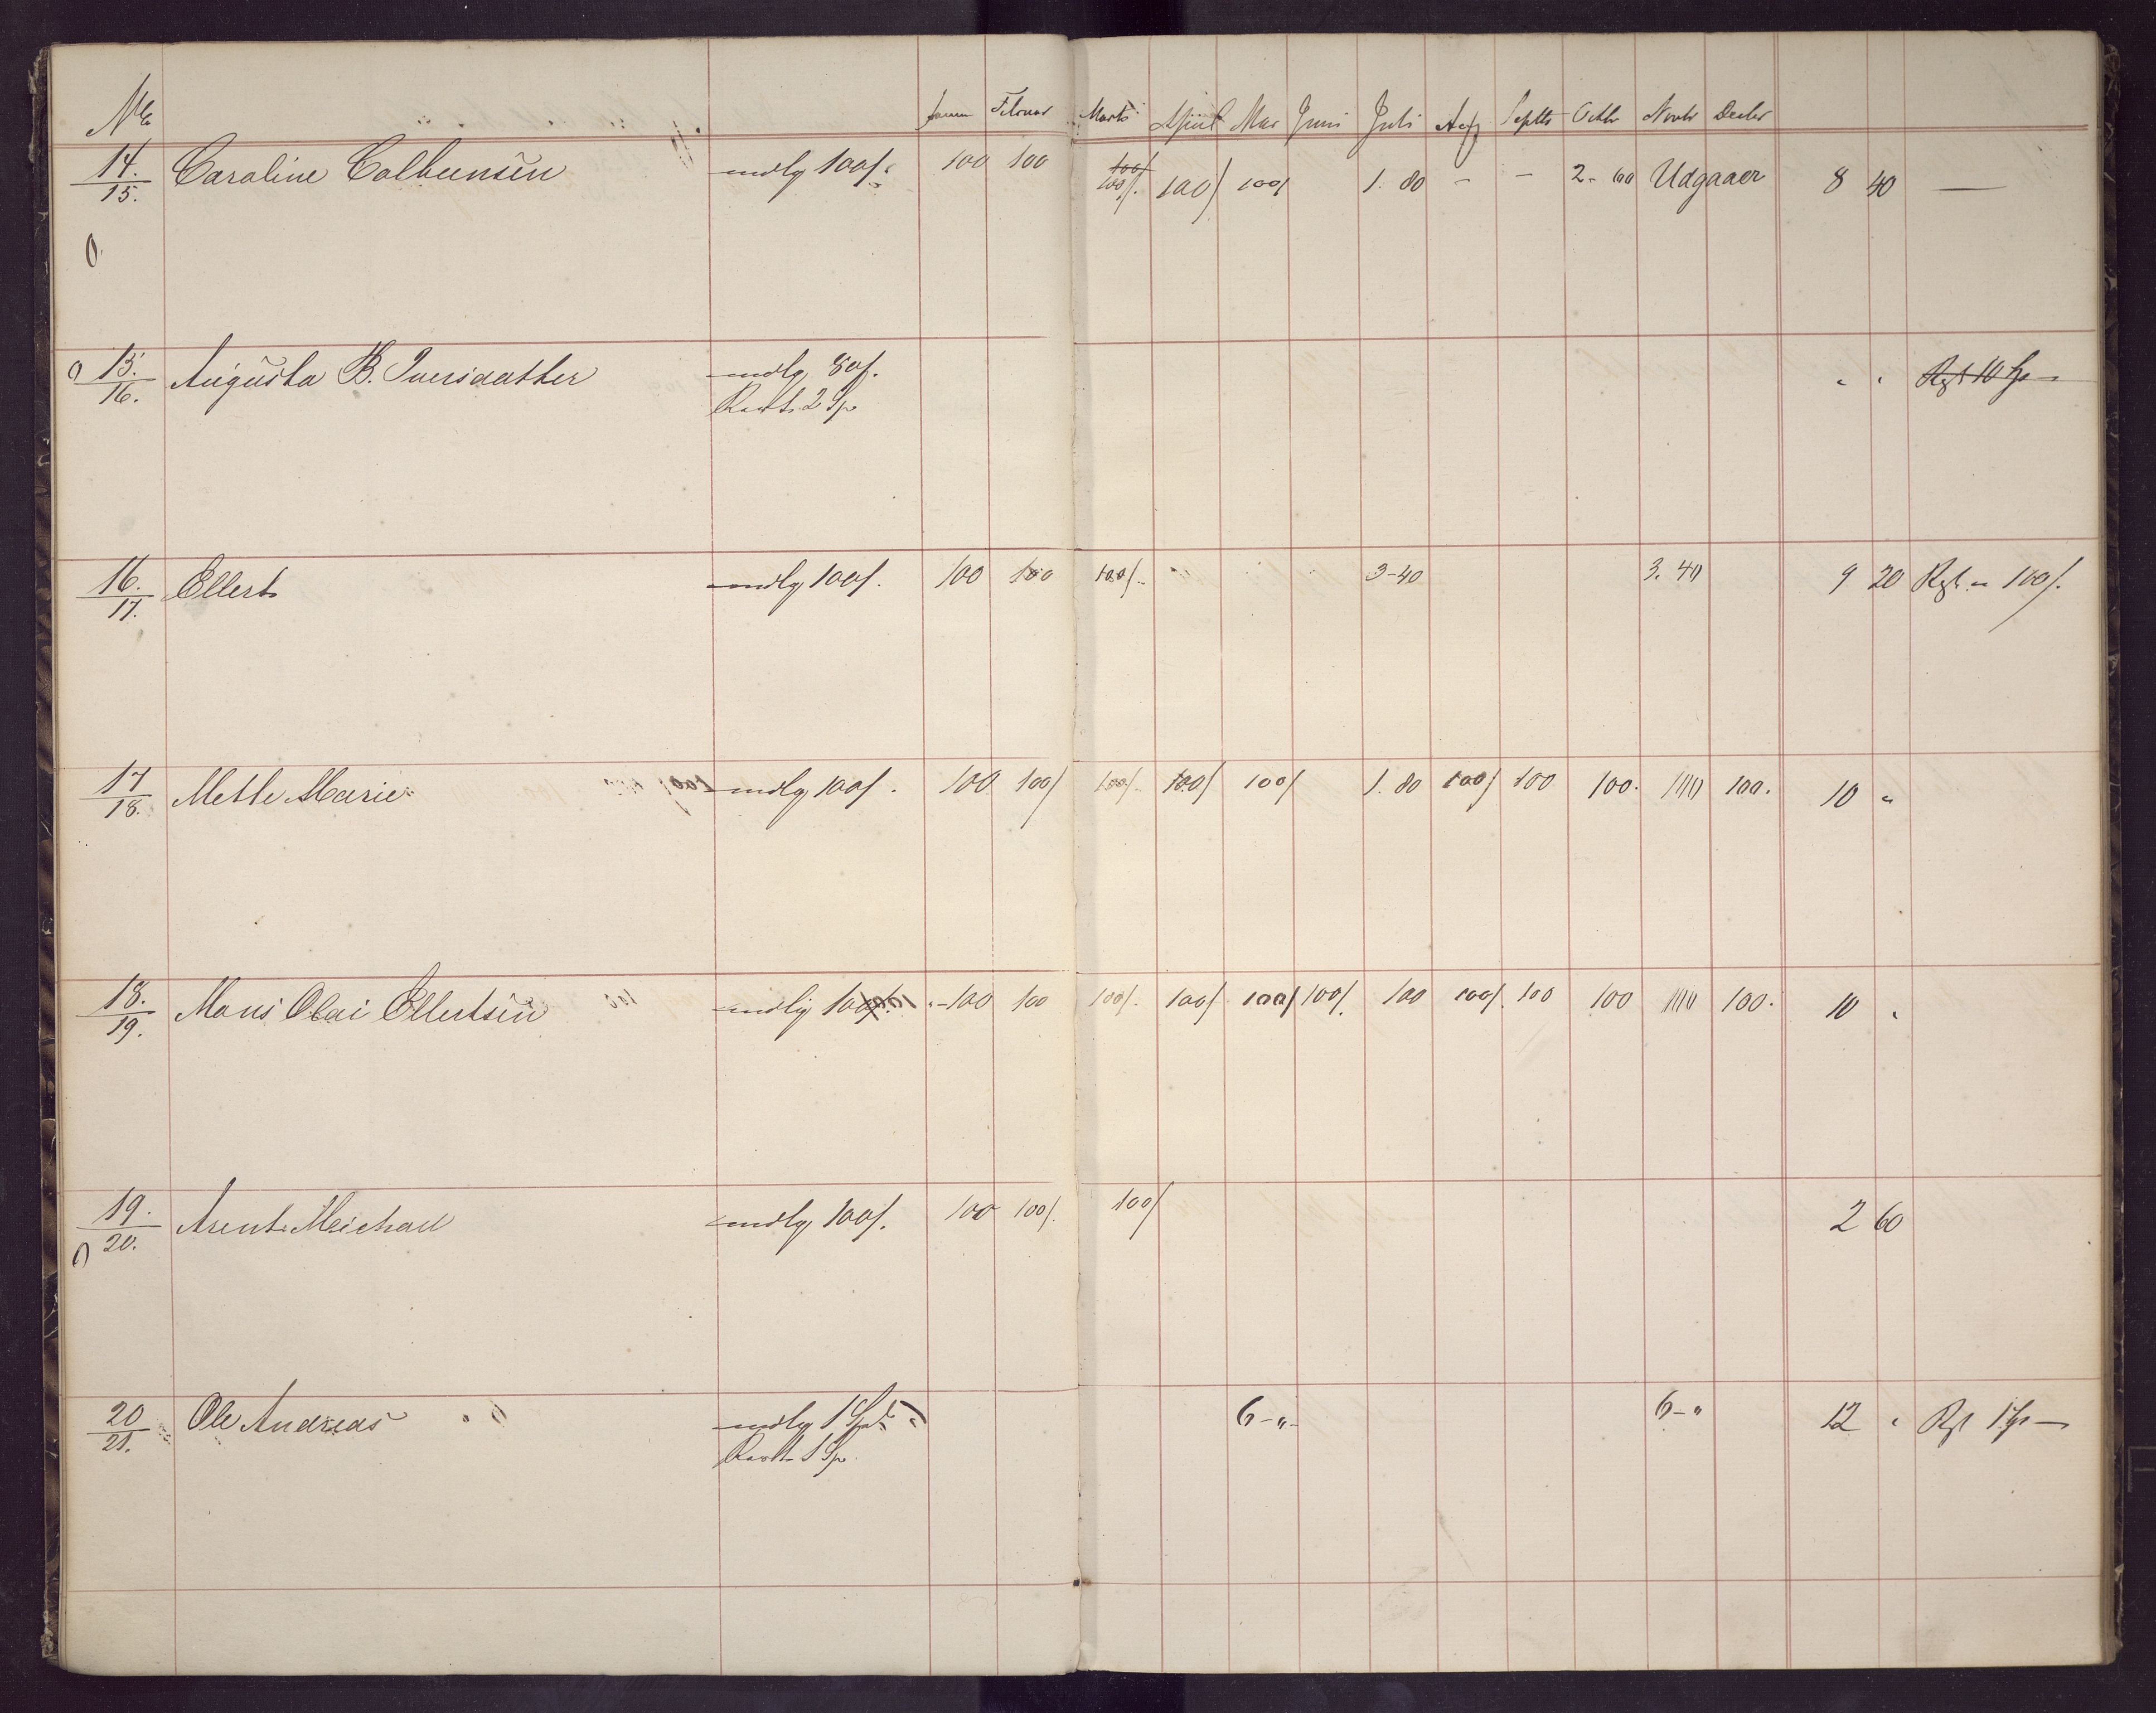 No
Januar Februar Marts April Mai Juni Juli Aug Septbr Octbr Novbr Decbr
14. Caroline Colbeinsen mdlg 100 ſ. 100 100 100 ſ 100 ſ 1. 80 - - 2 - 60 Udgaaer 8 40 —
15.
100 ſ.
0
15. Augusta B. Iversaather mdlg 80 ſ. " " Rgt 10 Sp —
16. Rest 2 Sp
16. Ellert mdlg 100 ſ. 100 100 100 ſ. 3-40 3. 40 9 20 Rgt. " 100 ſ.
17.
17 Mette Marie mdlg 100 ſ. 100 100 ſ 100 ſ. 100 ſ 100 ſ 1. 80 100 ſ 100 100. 100 100. 10 "
18.
18. Mons Olai Ellertsen mdlig 100 ſ. 100 100 100 ſ. 100 ſ 100 ſ 100 ſ. 100 100 ſ. 100 100 100 100. 10 "
19.
19. Arent Meichael mdlg 100 ſ. 100 100 ſ. 100 ſ 2 60
20.
20 Ole Andreas mdlg 1 Spd 6 - " - 6 - " 12 " Rgt 1 Sp —
21. Rest 1 Sp.